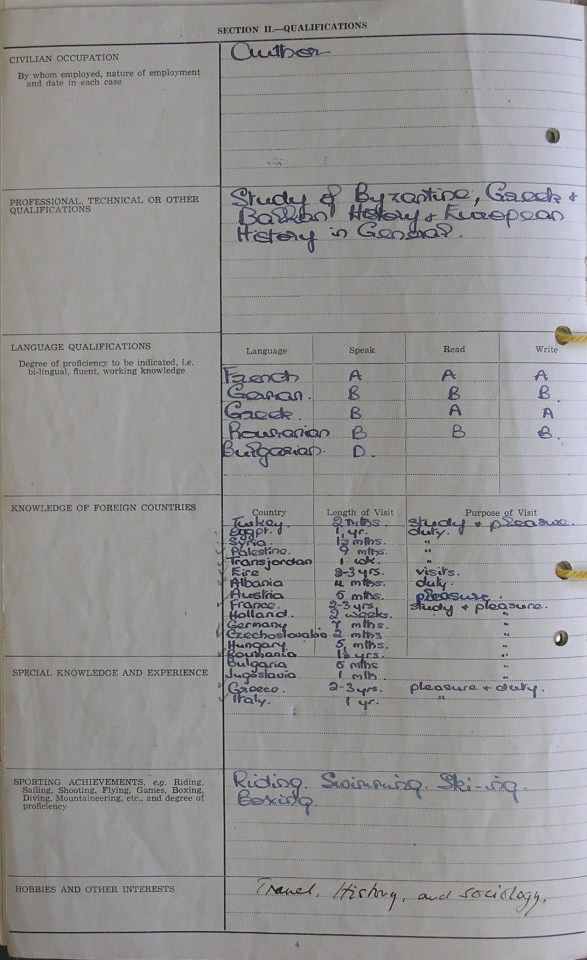 SECTION II.—QUALIFICATIONS
CIVILIAN OCCUPATION
By whom employed, nature of employment
and date in each case
Author
PROFESSIONAL, TECHNICAL OR OTHER
QUALIFICATIONS
Study of Byzantine, Greek +
Balkan History + European
History in General.
LANGUAGE QUALIFICATIONS
Degree of proficiency to be indicated, i.e.
bi-lingual, fluent, working knowledge
Language Speak Read Write
French A A A
German. B B B
Greek. B A A
Roumanian B B B.
Bulgarian. D.
KNOWLEDGE OF FOREIGN COUNTRIES
Country Length of Visit Purpose of Visit
Turkey. 2 mths. study + pleasure.
Egypt. 1 yr. duty.
Syria. 1½ mths. "
Palestine. 9 mths. "
Transjordan 1 wk. "
Eire 2-3 yrs. visits.
Albania 4 mths. duty.
Austria 6 mths. pleasure.
France. 2-3 yrs. study + pleasure.
Holland. 2 weeks. "
Germany 7 mths. "
Czechoslovakia 2 mths "
Hungary 5 mths. "
Roumania 1½ yrs. "
Bulgaria 6 mths "
Jugoslavia 1 mth "
SPECIAL KNOWLEDGE AND EXPERIENCE
Greece. 2-3 yrs. pleasure + duty.
Italy. 1 yr. "
SPORTING ACHIEVEMENTS, e.g. Riding,
Sailing, Shooting, Flying, Games, Boxing,
Diving, Mountaineering, etc., and degree of
proficiency
Riding. Swimming. Ski-ing.
Boxing.
HOBBIES AND OTHER INTERESTS
Travel, History, and sociology.
4